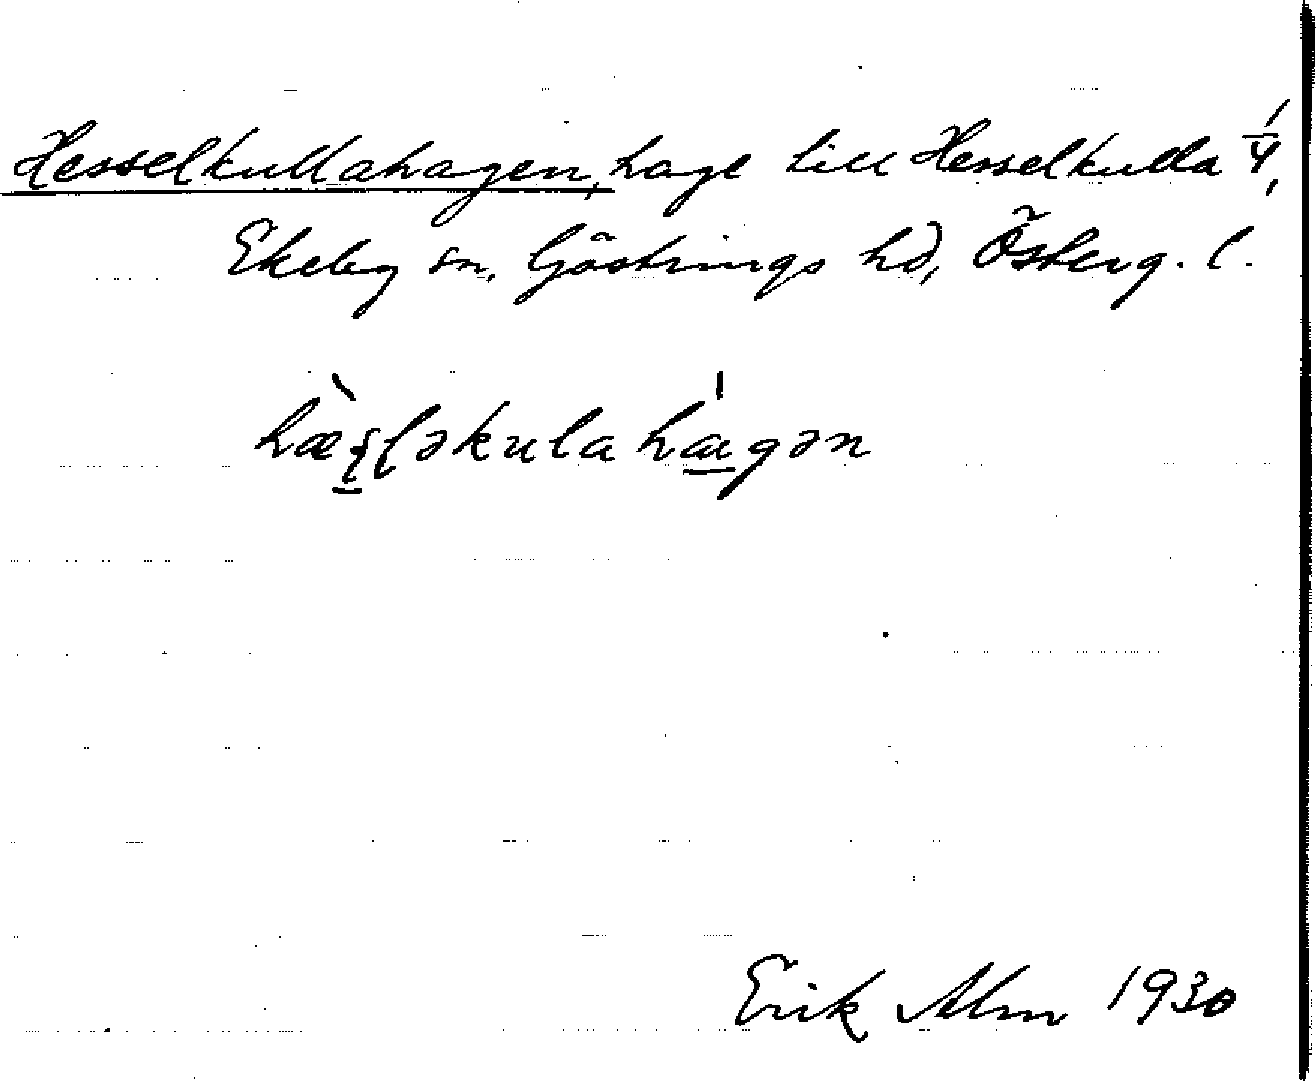 Hesselkullahagen, hage till Hesselkulla 1/4,
Ekeby sn, Göstrings hd, Österg. l.
hæ̀sləkulahágən
Erik Alm 1930